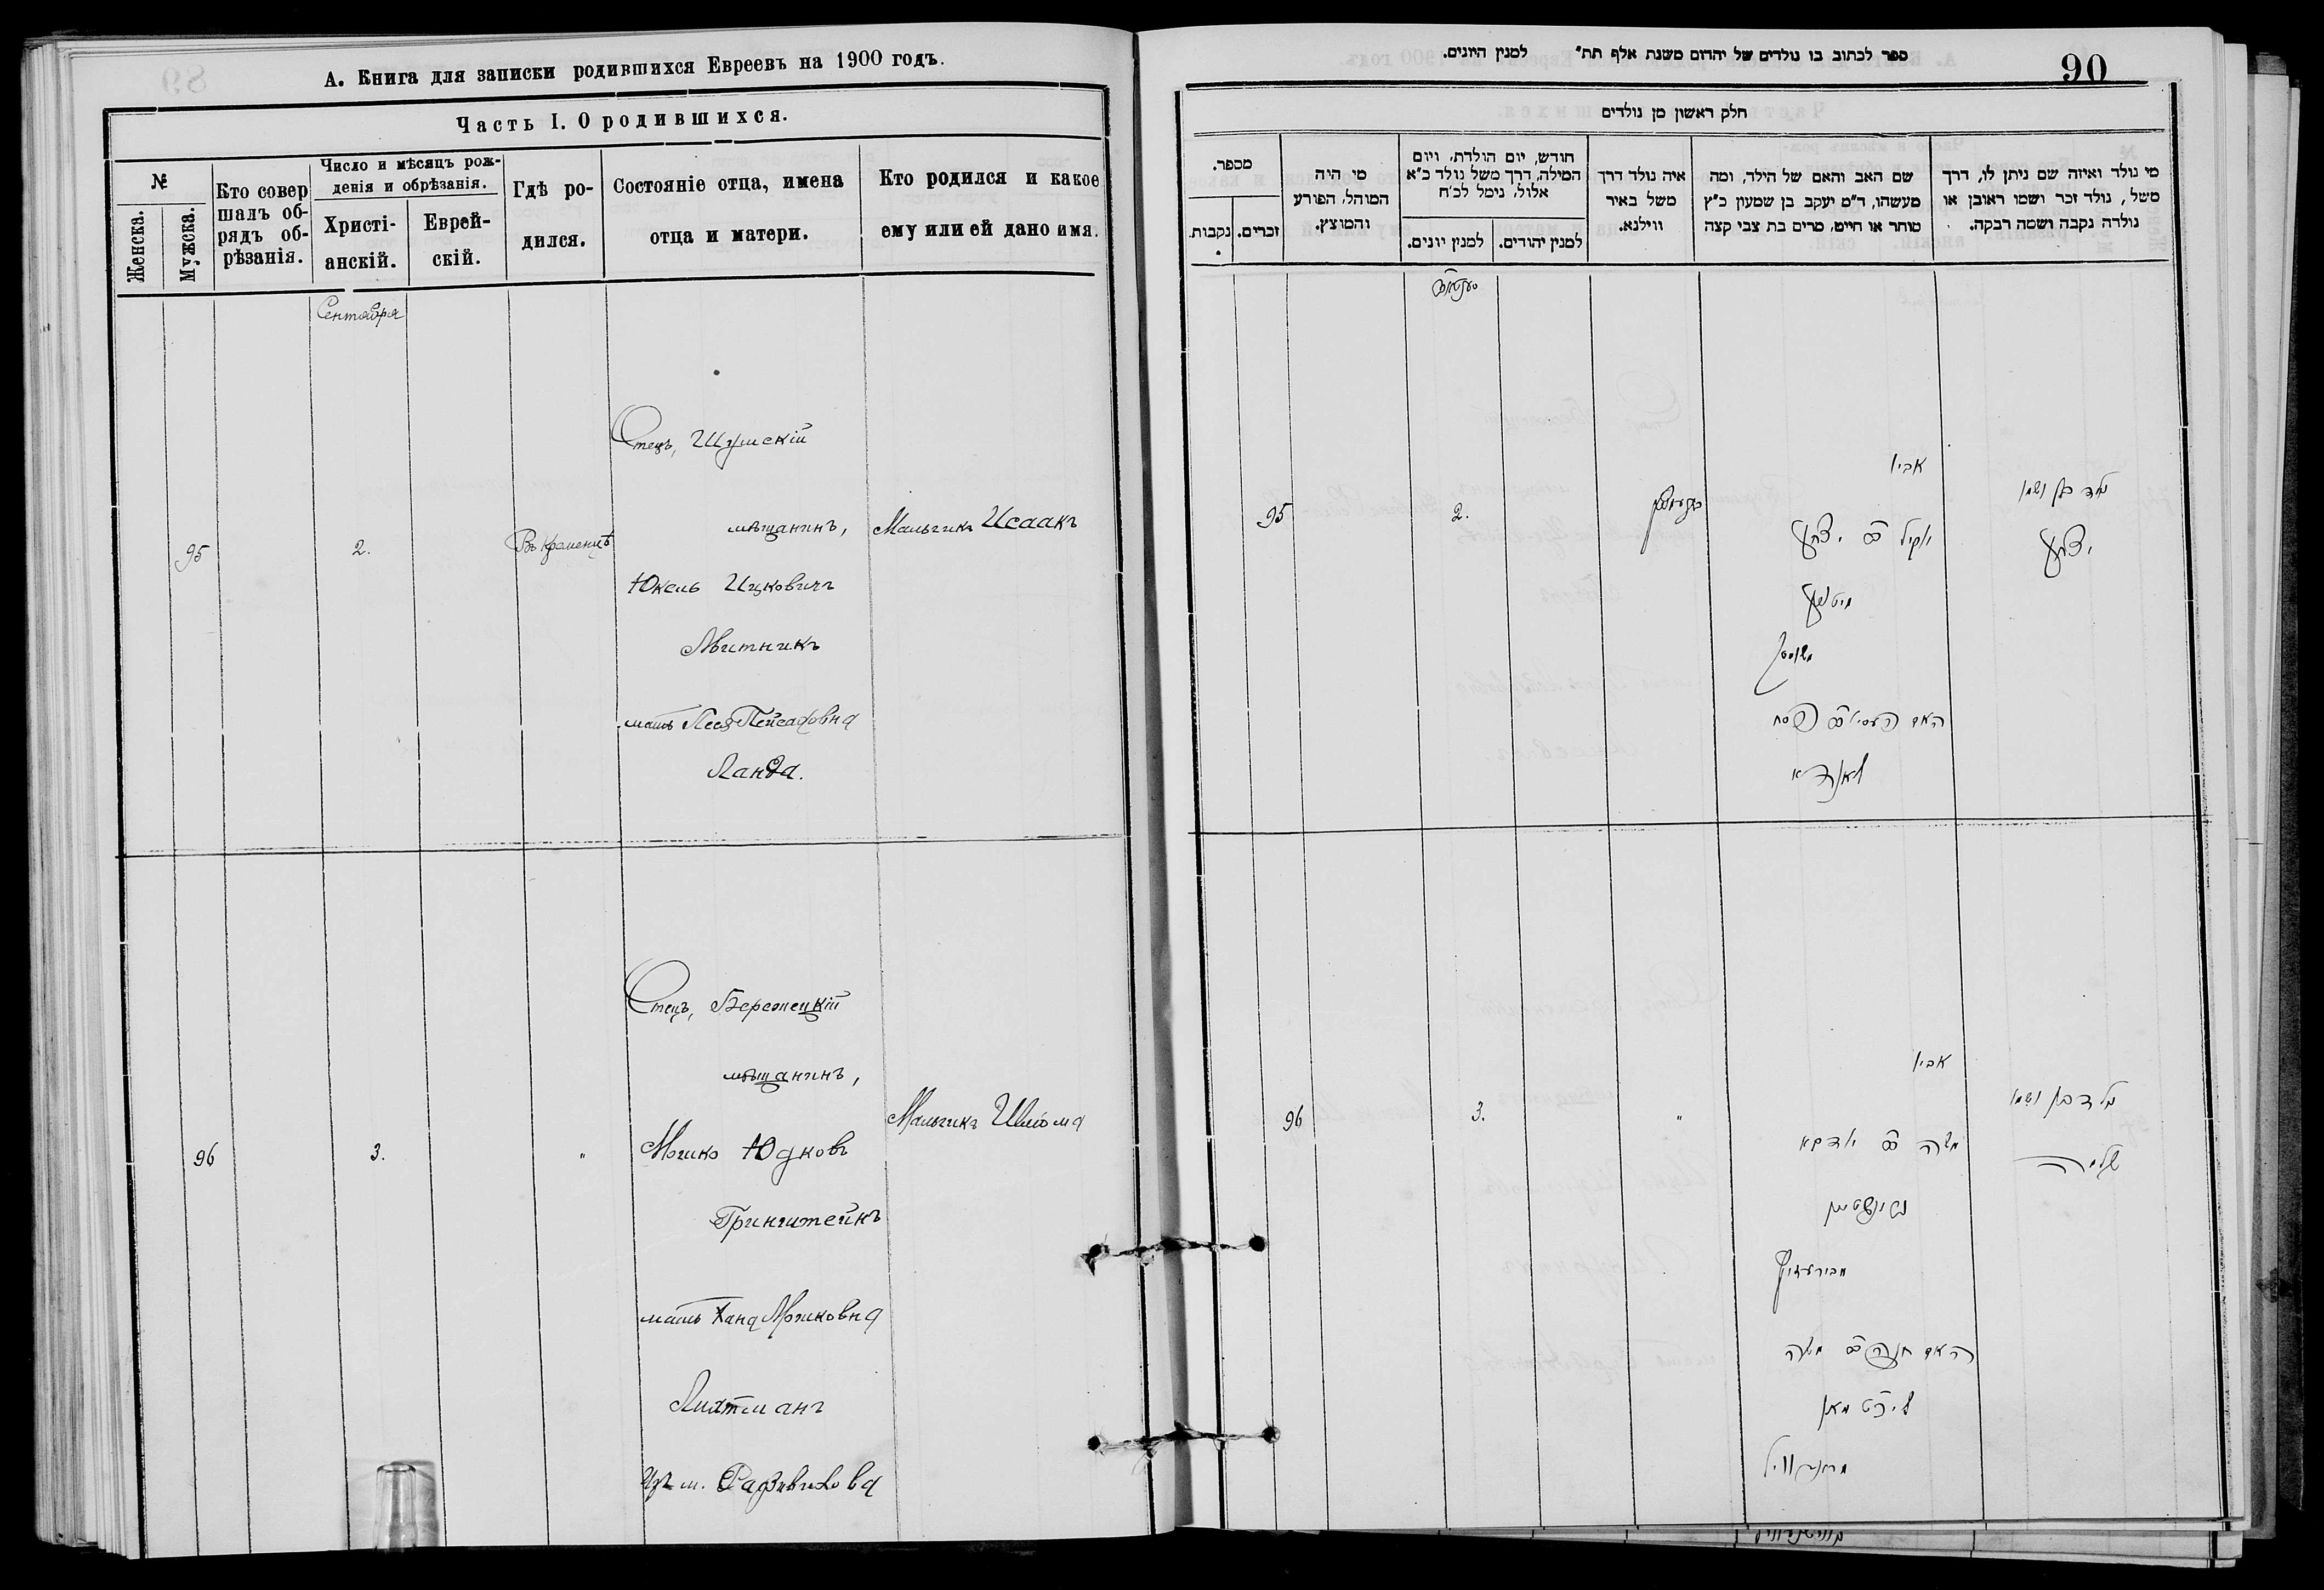 А. Книга для записки родившихся Евреевъ на 1900 годъ.
Часть I. О родившихся.
№
Женска.
Мужска.
Кто совер
шалъ об-
рядъ об-
рѣзанія.
Число и мѣсяцъ рож-
денія и обрѣзанія.
Христі-
анскій.
Еврей-
скій.
Гдѣ ро-
дился.
Состояніе отца, имена
отца и матери.
Кто родился и какое
ему или ей дано имя.
Сентября
95
2.
Въ Кременцѣ
Отецъ, Шумскій
мѣщанинъ,
Юкель Ицковичъ
Митникъ
мать Песя Пейсаховна
Ланда.
Мальчикъ Исаакъ
96
3.
"
Отецъ, Бережецкій
мѣщанинъ,
Мошко Юдковъ
Гринштейнъ
мать Хана Мошковна
Лихтманъ
изъ м. Радзивилова
Мальчикъ Шлёма
ספר לכתוב בו נולדים של יהדום משנת אלף תת״ למנין היונים.
90
חלק ראשון מן נולדים
מי נולד ואיזה שם ניתן לו, דרך
משל, נולד זכר ושמו ראובן או
נולדה נקבה ושמה רבקה.
שם האב והאם של הילד, ומה
מעשהו, ד״מ יעקב בן שמעון כ״ץ
סוחר או חייט, מרים בת צבי קצה
איה נולד דרך
משל באיר
ווילנא.
חודש, יום הולדת, ויום
המילה, דרך משל נולד כ״א
אלול, נימל לכ״ח
למנין יהודים.
למנין יונים.
מי היה
המוהל, הפורע
והמוצץ.
מספר.
זכרים.
נקבות.
95
2.
אביו
יצחק
לאנדא
נולד בן ושמו
יצחק
96
3.
"
אביו
משה
גרינשטיין
ליכטמאן
נולד בן ושמו
שלמה